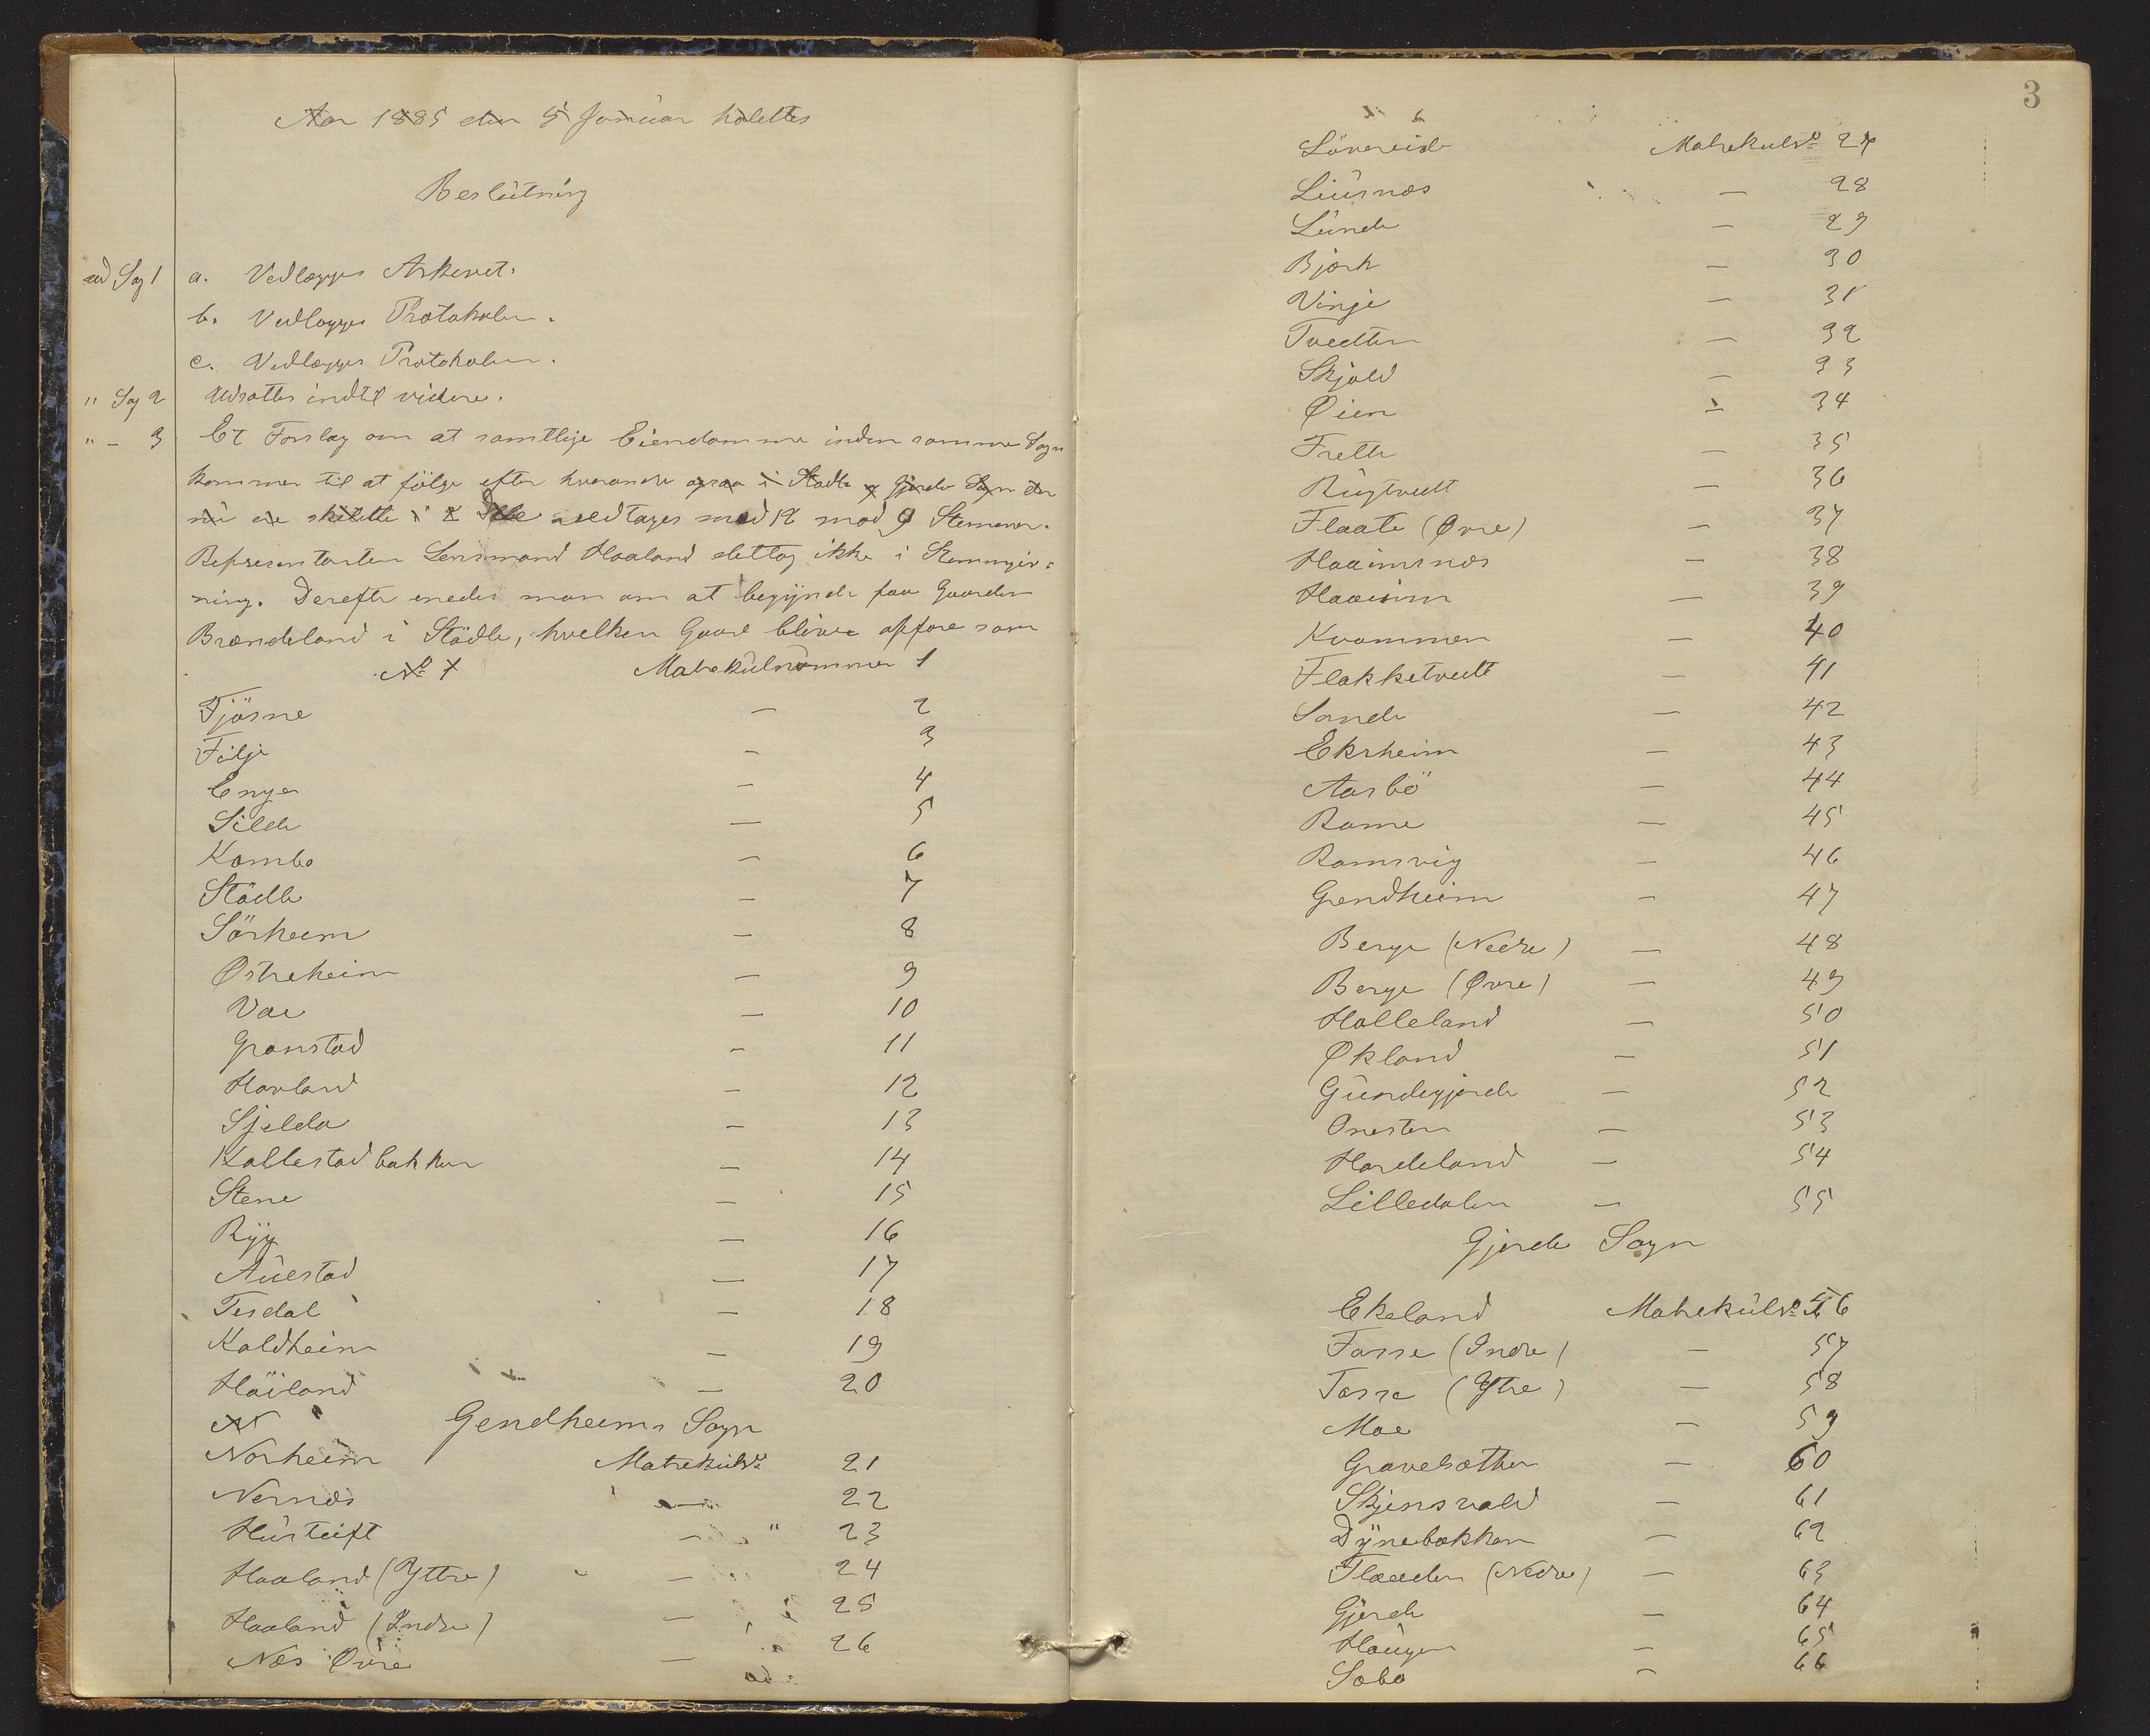 Aar 1885 den 5 Januar holdttes
Beslütning
ad Sag 1 a. Vedlægges Arkevet.
b. Vedlægges Protokolen.
c. Vedlægges Protokolen.
" Sag 2 Udsættes indtil videre.
" — 3 Et Forslag om at samtlige Eiendomme inden samme Sogn
kommer til at følge efter hverandre ogsaa i Stødle og Gjerde Sogn der
nü ere skildte i 2 Dele vedtages med 12 mod 9 Stemmer.
Represenstanten Lensmand Haaland deltog ikke i Stemmgiv-
ning. Derefter enedes man om at begÿnde paa Gaarden
Brændeland i Stødle, hvelken Gaard bliver opføre som
No 1 Matrekülnummer 1
Tjösne — 2
Filje — 3
Enge — 4
Silde — 5
Kambo — 6
Stödle — 7
Sörheim — 8
Østreheim — 9
Vae — 10
Granstad — 11
Havland — 12
Sjelda — 13
Kallestadbakken — 14
Stene — 15
Rÿg — 16
Aüestad — 17
Tesdal — 18
Kaldheim — 19
Höiland — 20
N Gendheims Sogn
Norheim Matrekülno 21
Nernæs — 22
Hüsteift — " 23
Haaland (Yttre) — 24
Haaland (Indre) — 25
Næs Øvre — 26
3
Lövereide Matrekulno 27
Liüsnæs — 28
Lünde — 29
Bjørk — 30
Vinje — 31
Tvedten — 32
Skjold — 33
Øien — 34
Frette — 35
Rügtvedt — 36
Flaate (Øvre) — 37
Haaimsnæs — 38
Haaeim — 39
Kvammen — 40
Flakketvedt — 41
Sande — 42
Eksheim — 43
Aarbö — 44
Rame — 45
Ramsvig — 46
Grendheim — 47
Berge (Nedre) — 48
Berge (Øvre) — 49
Halleland — 50
Økland — 51
Gündegjerde — 52
Onesten — 53
Hardeland — 54
Lilledalen — 55
Gjerde Sogn
Ekeland Matrekülno 56
Tasse (Indre) — 57
Tasse (Ytre) — 58
Moe — 59
Gravelsæther — 60
Skjensvold — 61
Dÿnebakken — 62
Flaaden (Nedre) — 63
Gjerde — 64
Haügen — 65
Sæbø — 66